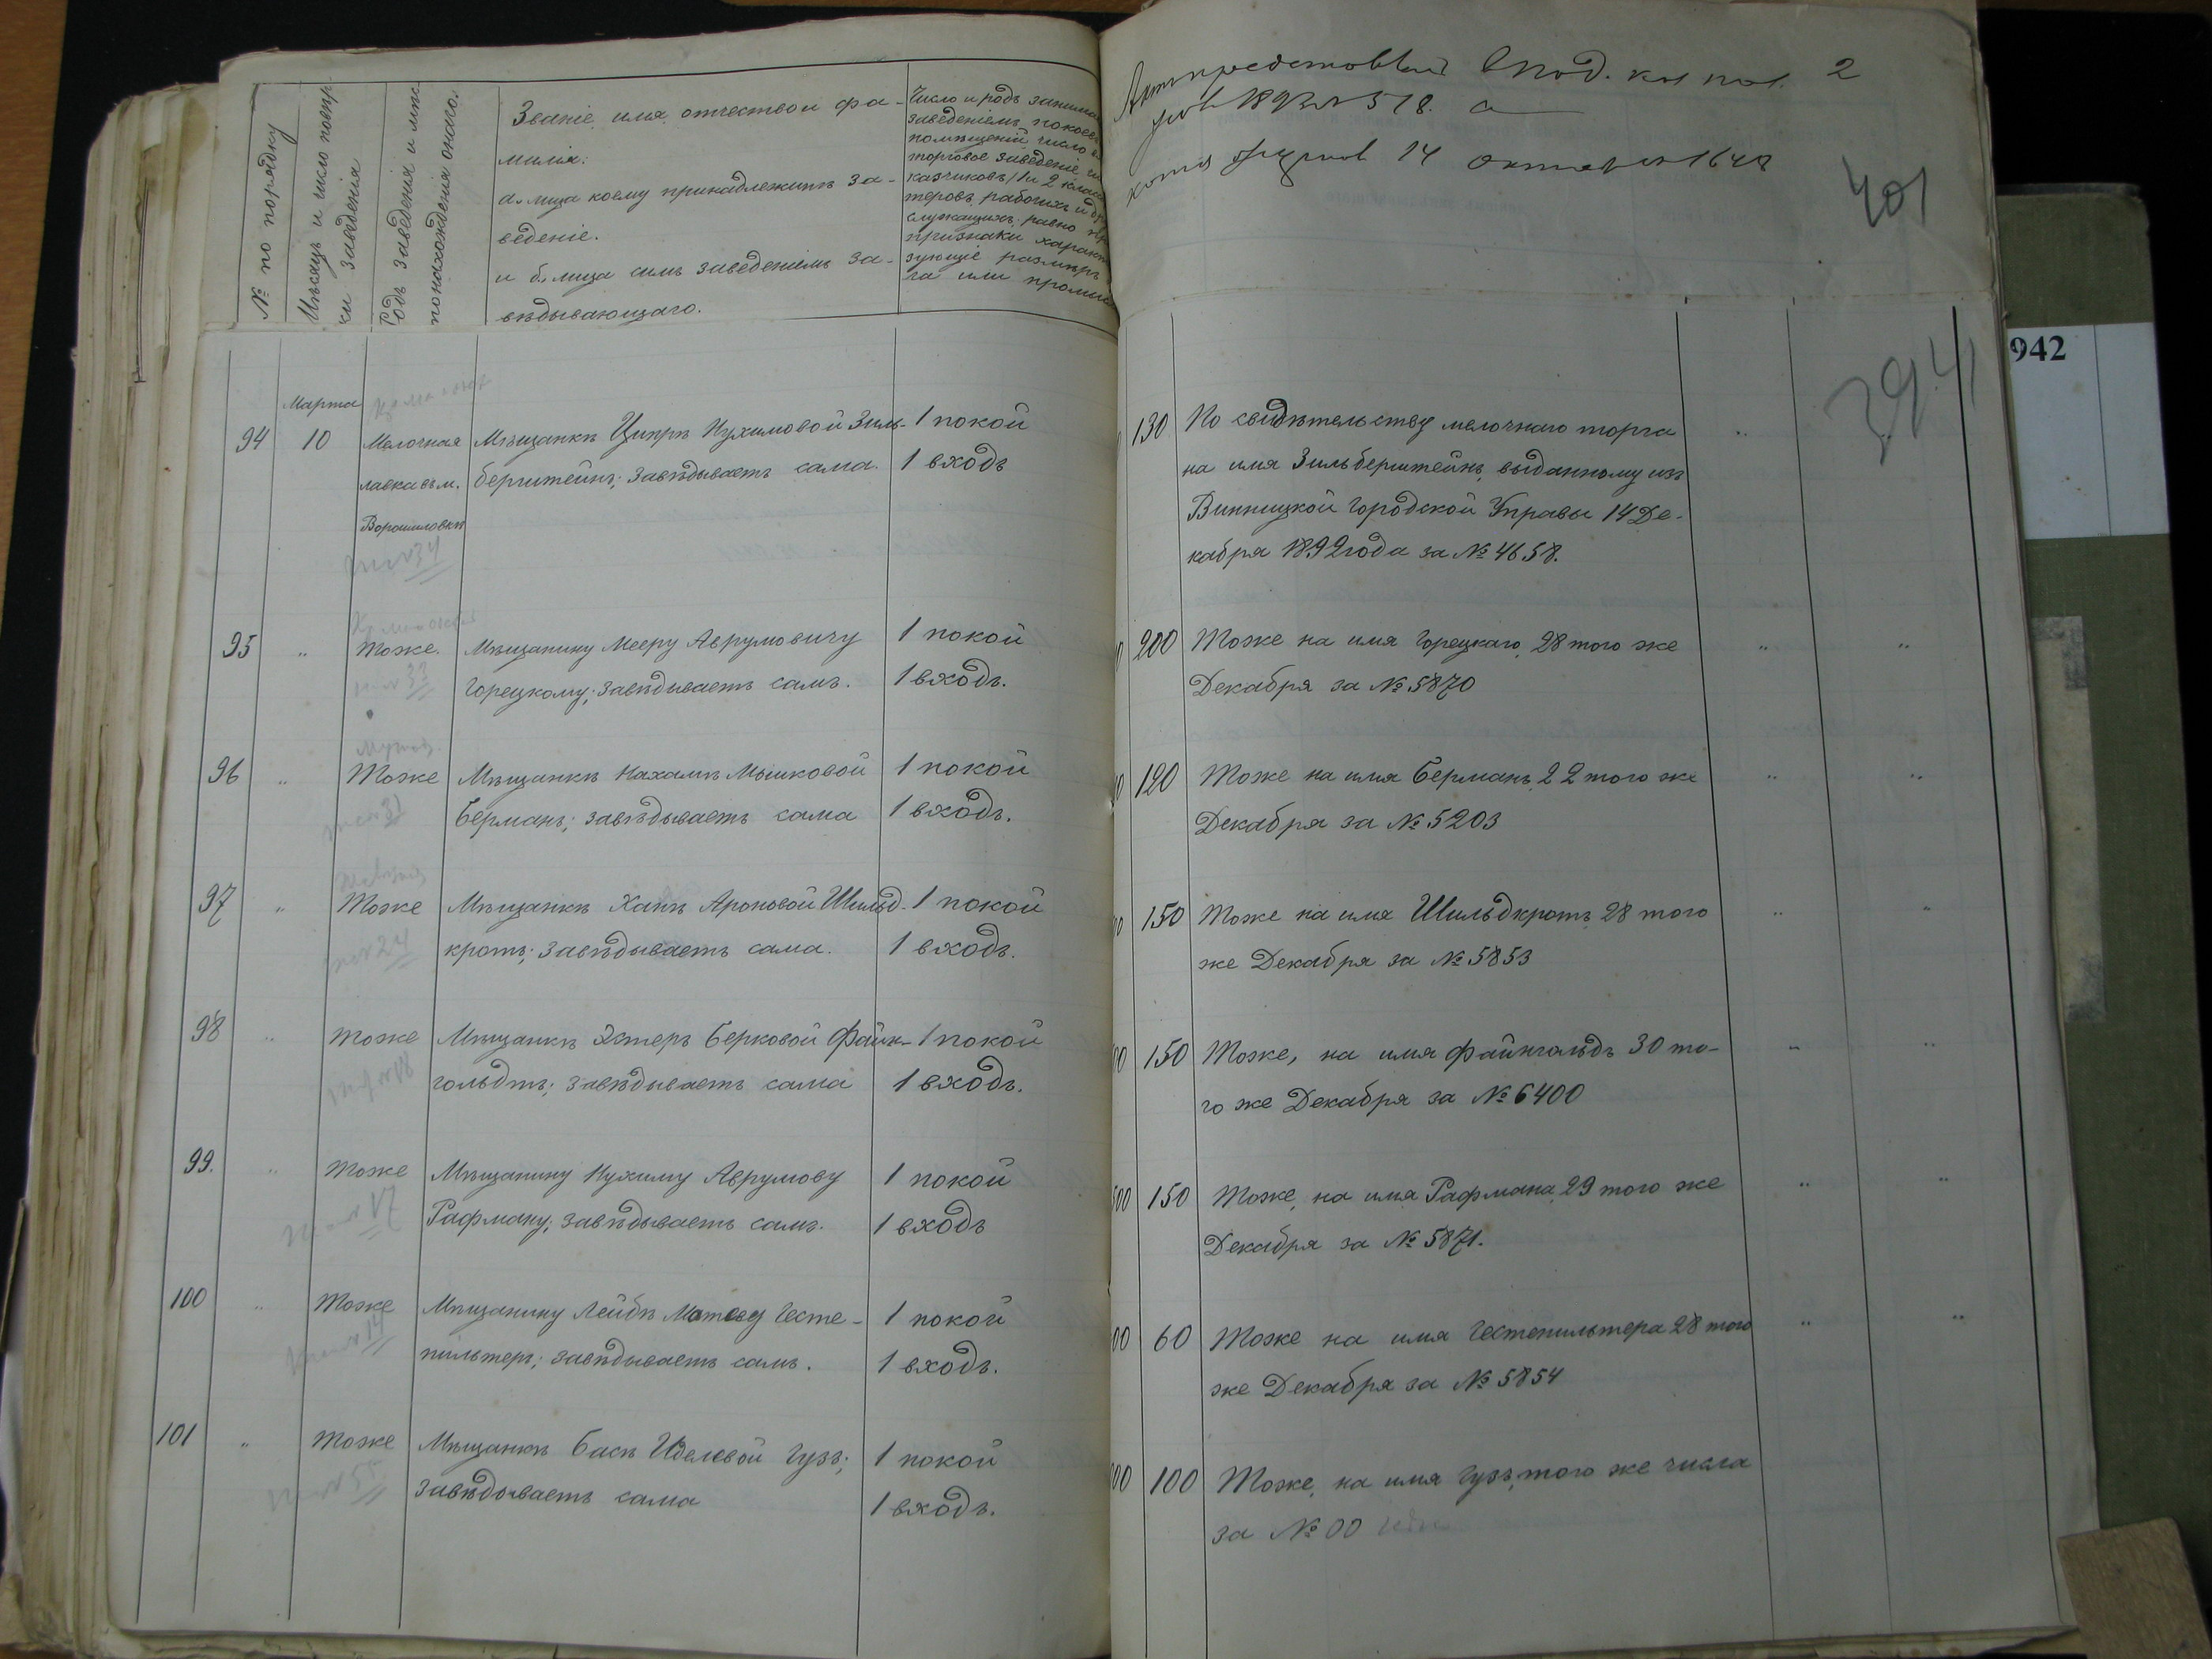 № по порядку
Мѣсяцъ и число повѣр
ки заведенія
Родъ заведенія и мѣс
понахожденія онаго.
Званіе, имя, отчество и фа-
милія:
а, лица коему принадлежитъ за-
веденіе.
и б, лица симъ заведеніемъ за-
вѣдывающаго.
Число и родъ занима
заведеніемъ покоевъ
помѣщеній число
торговое заведеніе
казчиковъ 1 и 2 клас
теровъ, рабочихъ и др
служащихъ; равно
признаки характ
зующіе размѣръ
га или промы
Марта
94 10 Мелочная Мѣщанкѣ Ципрѣ Нухимовой Зиль- 1 покой
лавка въ м. берштейнъ; завѣдываетъ сама. 1 входъ
Ворошиловкѣ
№34
95 " Тоже. Мѣщанину Мееру Аврумовичу 1 покой
Горецкому; завѣдываетъ самъ. 1 входъ.
96 " Тоже Мѣщанкѣ Нахамѣ Мошковой 1 покой
Берманъ; завѣдываетъ сама 1 входъ.
97 " Тоже Мѣщанкѣ Ханѣ Ароновой Шильд- 1 покой
кротъ; завѣдываетъ сама. 1 входъ.
№24
98 " Тоже Мѣщанкѣ Эстеръ Берковой Файн- 1 покой
гольдтъ; завѣдываетъ сама 1 входъ.
99. " Тоже Мѣщанину Нухиму Аврумову 1 покой
Рафману; завѣдываетъ самъ. 1 входъ
100 " Тоже Мѣщанину Лейбѣ Мотеву Гесте- 1 покой
пильтеръ; завѣдываетъ самъ. 1 входъ.
101 " Тоже Мѣщанкѣ Басѣ Иделевой Гузъ; 1 покой
завѣдываетъ сама 1 входъ.
2
401
394
942
130 По свидѣтельству мелочнаго торга "
на имя Зильберштейнъ, выданному изъ
Винницкой Городской Управы 14 Де-
кабря 1892 года за № 4658.
200 Тоже на имя Горецкаго, 28 того же " "
Декабря за № 5870
120 Тоже на имя Берманъ, 22 того же " "
Декабря за № 5203
150 Тоже на имя Шильдкротъ, 28 того " "
же Декабря за № 5853
150 Тоже, на имя Файнгольдъ 30 то- " "
го же Декабря за № 6400
150 Тоже, на имя Рафмана, 29 того же " "
Декабря за № 5871.
60 Тоже на имя Гестепильтера 28 того " "
же Декабря за № 5854
100 Тоже, на имя Гузъ, того же числа
за № 00